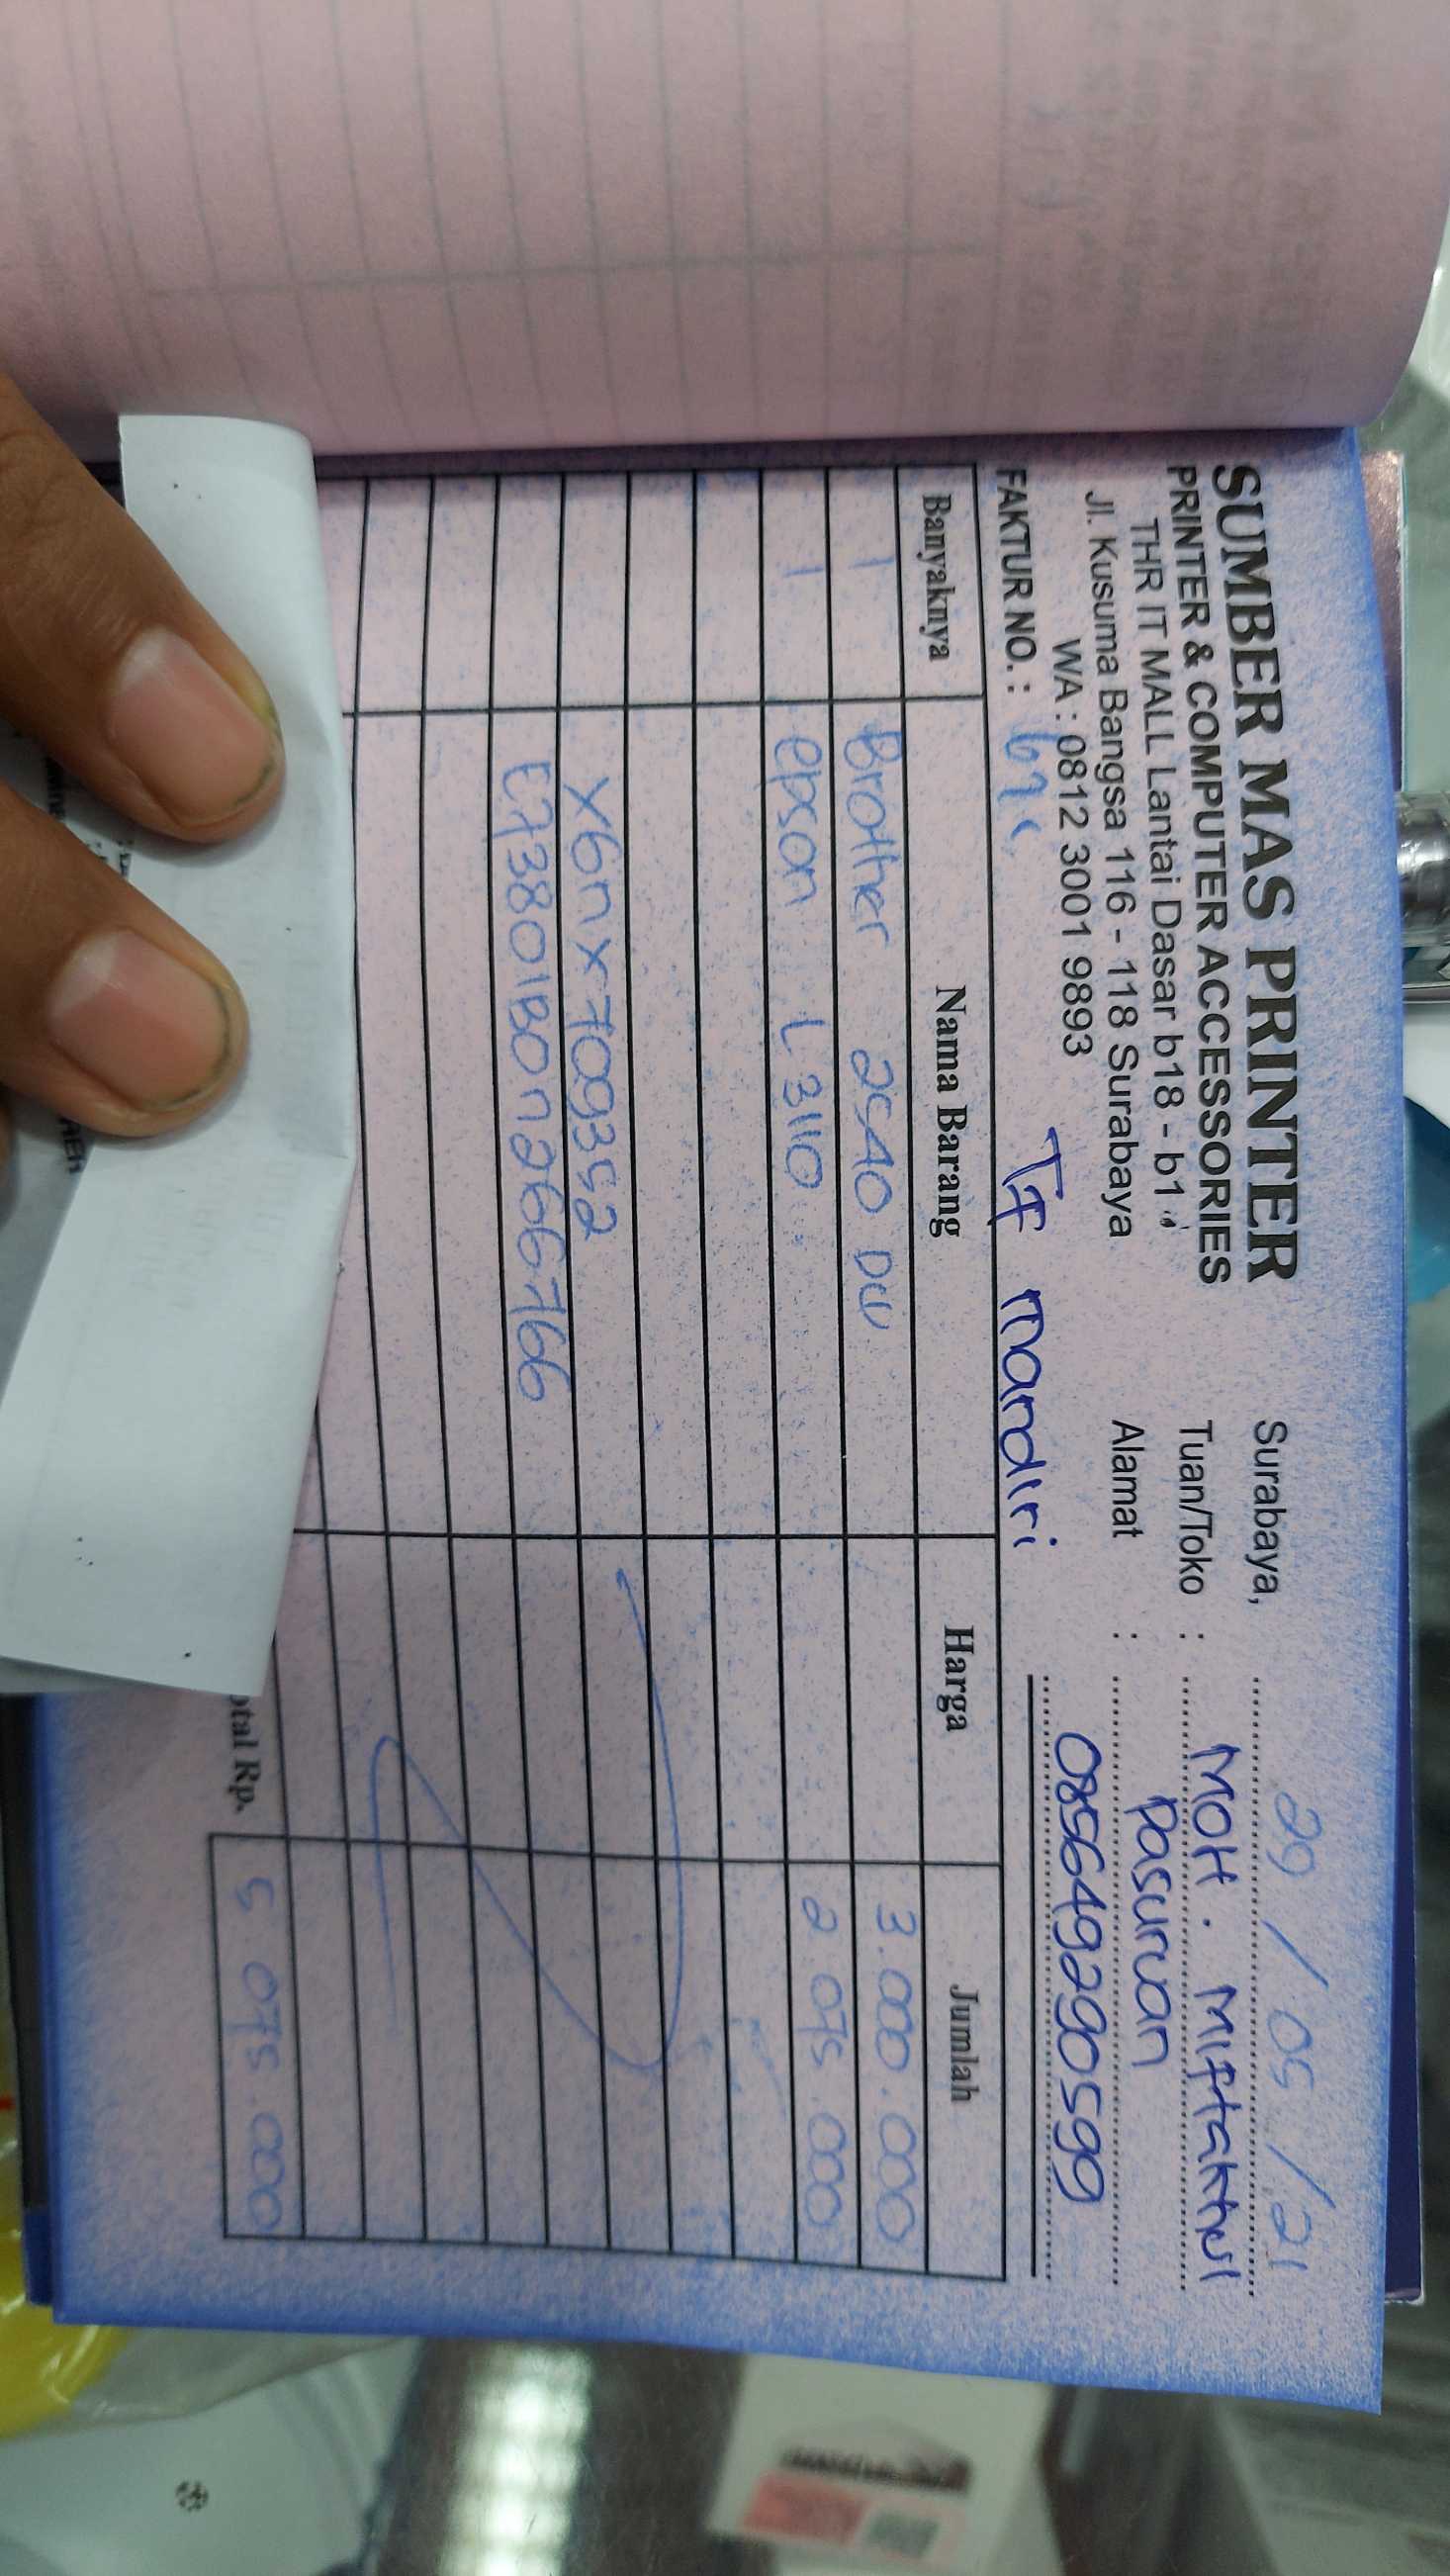 SUMBER MAS PRINTER
PRINTER & COMPUTER ACCESSORIES
THR IT MALL Lantai Dasar b18 - b1
Jl. Kusuma Bangsa 116 - 118 Surabaya
WA : 0812 3001 9893
Surabaya, 29 / 05 / 21
Tuan/Toko : MOH. Miftakhul
Alamat : Pasuruan
085649290599
FAKTUR NO. :
TF mandiri
Banyaknya Nama Barang Harga Jumlah
1 Brother 2540 DW 3.000.000
1 epson L3110 2 075.000
X6nx709352
E73801B0n266766
otal Rp. 5 075.000